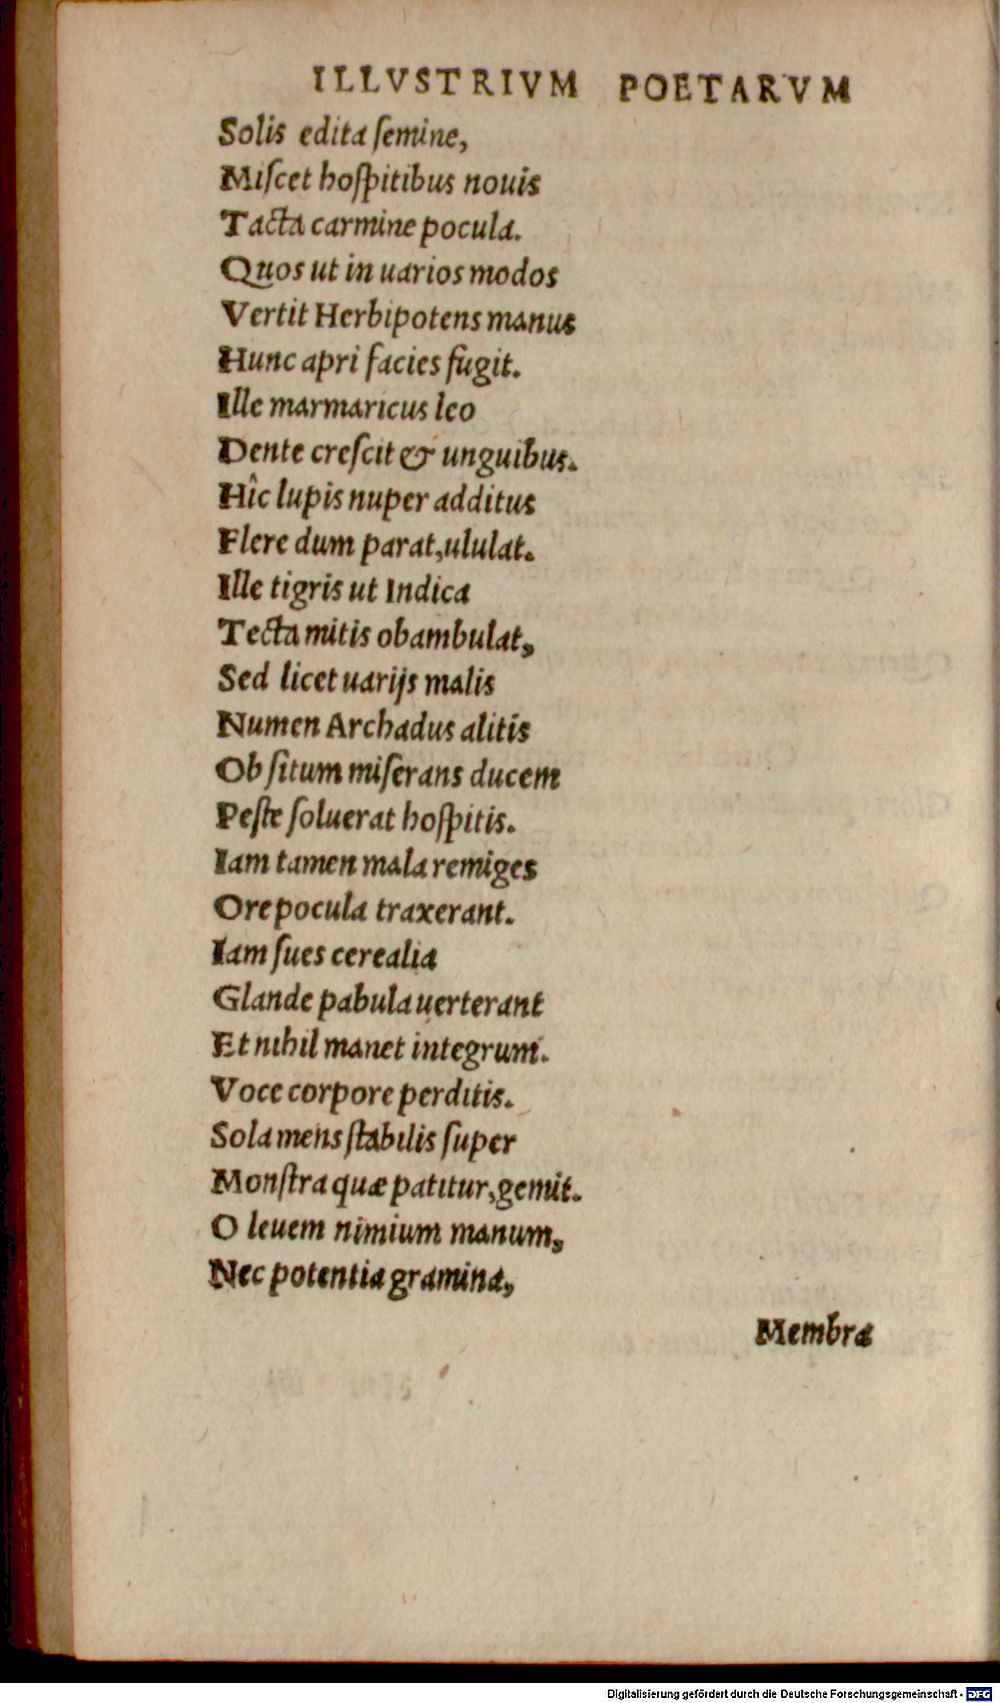 ILLVSTRIVM POETARVM
Solis edita ſemine,
Miſcet hoſpitibus nouis
Tacta carmine pocula.
Quos ut in uarios modos
Vertit Herbipotens manus
Hunc apri facies fugit.
Ille marmaricus leo
Dente creſcit & unguibus.
Hîc lupis nuper additus
Flere dum parat, ululat.
Ille tigris ut Indica
Tecta mitis obambulat,
Sed licet uarijs malis
Numen Archadus alitis
Ob ſitum miſerans ducem
Peſte ſoluerat hoſpitis.
Iam tamen mala remiges
Ore pocula traxerant.
Iam ſues cerealia
Glande pabula uerterant
Et nihil manet integrum.
Voce corpore perditis.
Sola mens ſtabilis ſuper
Monſtra quæ patitur, gemit.
O leuem nimium manum,
Nec potentia gramina,
Membra
Digitalisierung gefördert durch die Deutsche Forschungsgemeinschaft - DFG